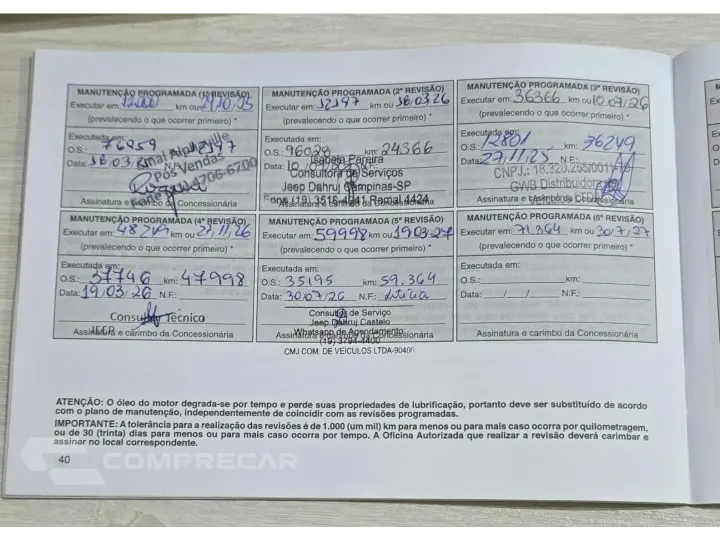 MANUTENÇÃO PROGRAMADA (1ª REVISÃO)
Executar em: 12000 km ou
(prevalecendo o que ocorrer primeiro) *
Executada em:
O.S.: 76859
Data: 18.03.
Pós Vendas
4706-6700
Assinatura e Concessionária
MANUTENÇÃO PROGRAMADA (2ª REVISÃO)
Executar em: 12197 km ou 18.03.26
(prevalecendo o que ocorrer primeiro) *
Executada em:
O.S.: 96028 km: 24366
Data: 10
Isabela Pereira
Consultora de Serviços
Jeep Dahruj Campinas-SP
Fone (19) 3516-4941 Ramal 4424
Assinatura e carimbo da Concessionária
MANUTENÇÃO PROGRAMADA (3ª REVISÃO)
Executar em: 36366 km ou 10/07/26
(prevalecendo o que ocorrer primeiro) *
Executada em:
O.S.: 12801 km: 36249
Data: 27/11/25 N.F.:
CNPJ.: 18.320.255/0011-
GWB Distribuidora
Assinatura e carimbo da Concessionária
MANUTENÇÃO PROGRAMADA (4ª REVISÃO)
Executar em: 48249 km ou 27/11/26
(prevalecendo o que ocorrer primeiro) *
Executada em:
O.S.: 57746 km: 47998
Data: 19/03/26 N.F.:
Consultor Técnico
JEEP
Assinatura e carimbo da Concessionária
MANUTENÇÃO PROGRAMADA (5ª REVISÃO)
Executar em: 59998 km ou 19.03.27
(prevalecendo o que ocorrer primeiro) *
Executada em:
O.S.: 35195 km: 59.364
Data: 30/07/26 N.F.:
Consultor de Serviço
Jeep Dahruj Castelo
Whatsapp de Agendamento
(19) 3794-4400
Assinatura e carimbo da Concessionária
CMJ COM. DE VEÍCULOS LTDA-9040
MANUTENÇÃO PROGRAMADA (6ª REVISÃO)
Executar em: 71.364 km ou 30/7/27
(prevalecendo o que ocorrer primeiro) *
Executada em:
O.S.: km:
Data: / / N.F.:
Assinatura e carimbo da Concessionária
ATENÇÃO: O óleo do motor degrada-se por tempo e perde suas propriedades de lubrificação, portanto deve ser substituído de acordo
com o plano de manutenção, independentemente de coincidir com as revisões programadas.
IMPORTANTE: A tolerância para a realização das revisões é de 1.000 (um mil) km para menos ou para mais caso ocorra por quilometragem,
ou de 30 (trinta) dias para menos ou para mais caso ocorra por tempo. A Oficina Autorizada que realizar a revisão deverá carimbar e
assinar no local correspondente.
40
COMPRECAR